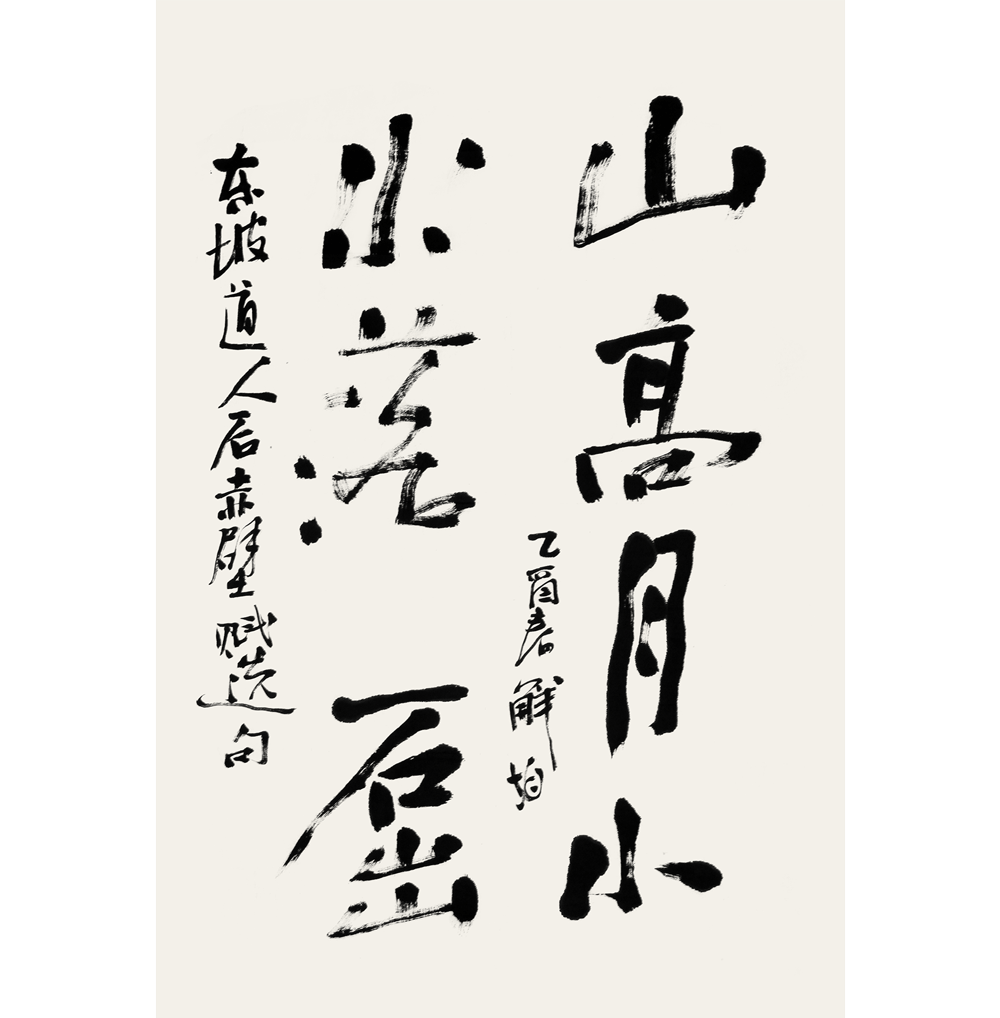 山高月小
乙酉春解珀
水落石出
东坡道人后赤壁赋选句